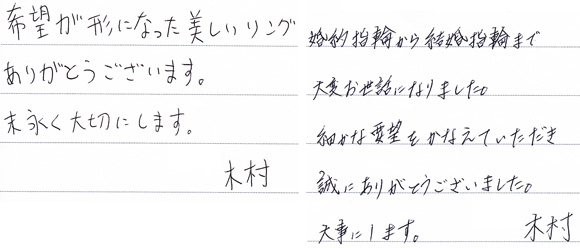 希望が形になった美しいリング
ありがとうございます。
末永く大切にします。
木村
婚約指輪から結婚指輪まで
大変お世話になりました。
細かな要望をかなえていただき
誠にありがとうございました。
大事にします。
木村